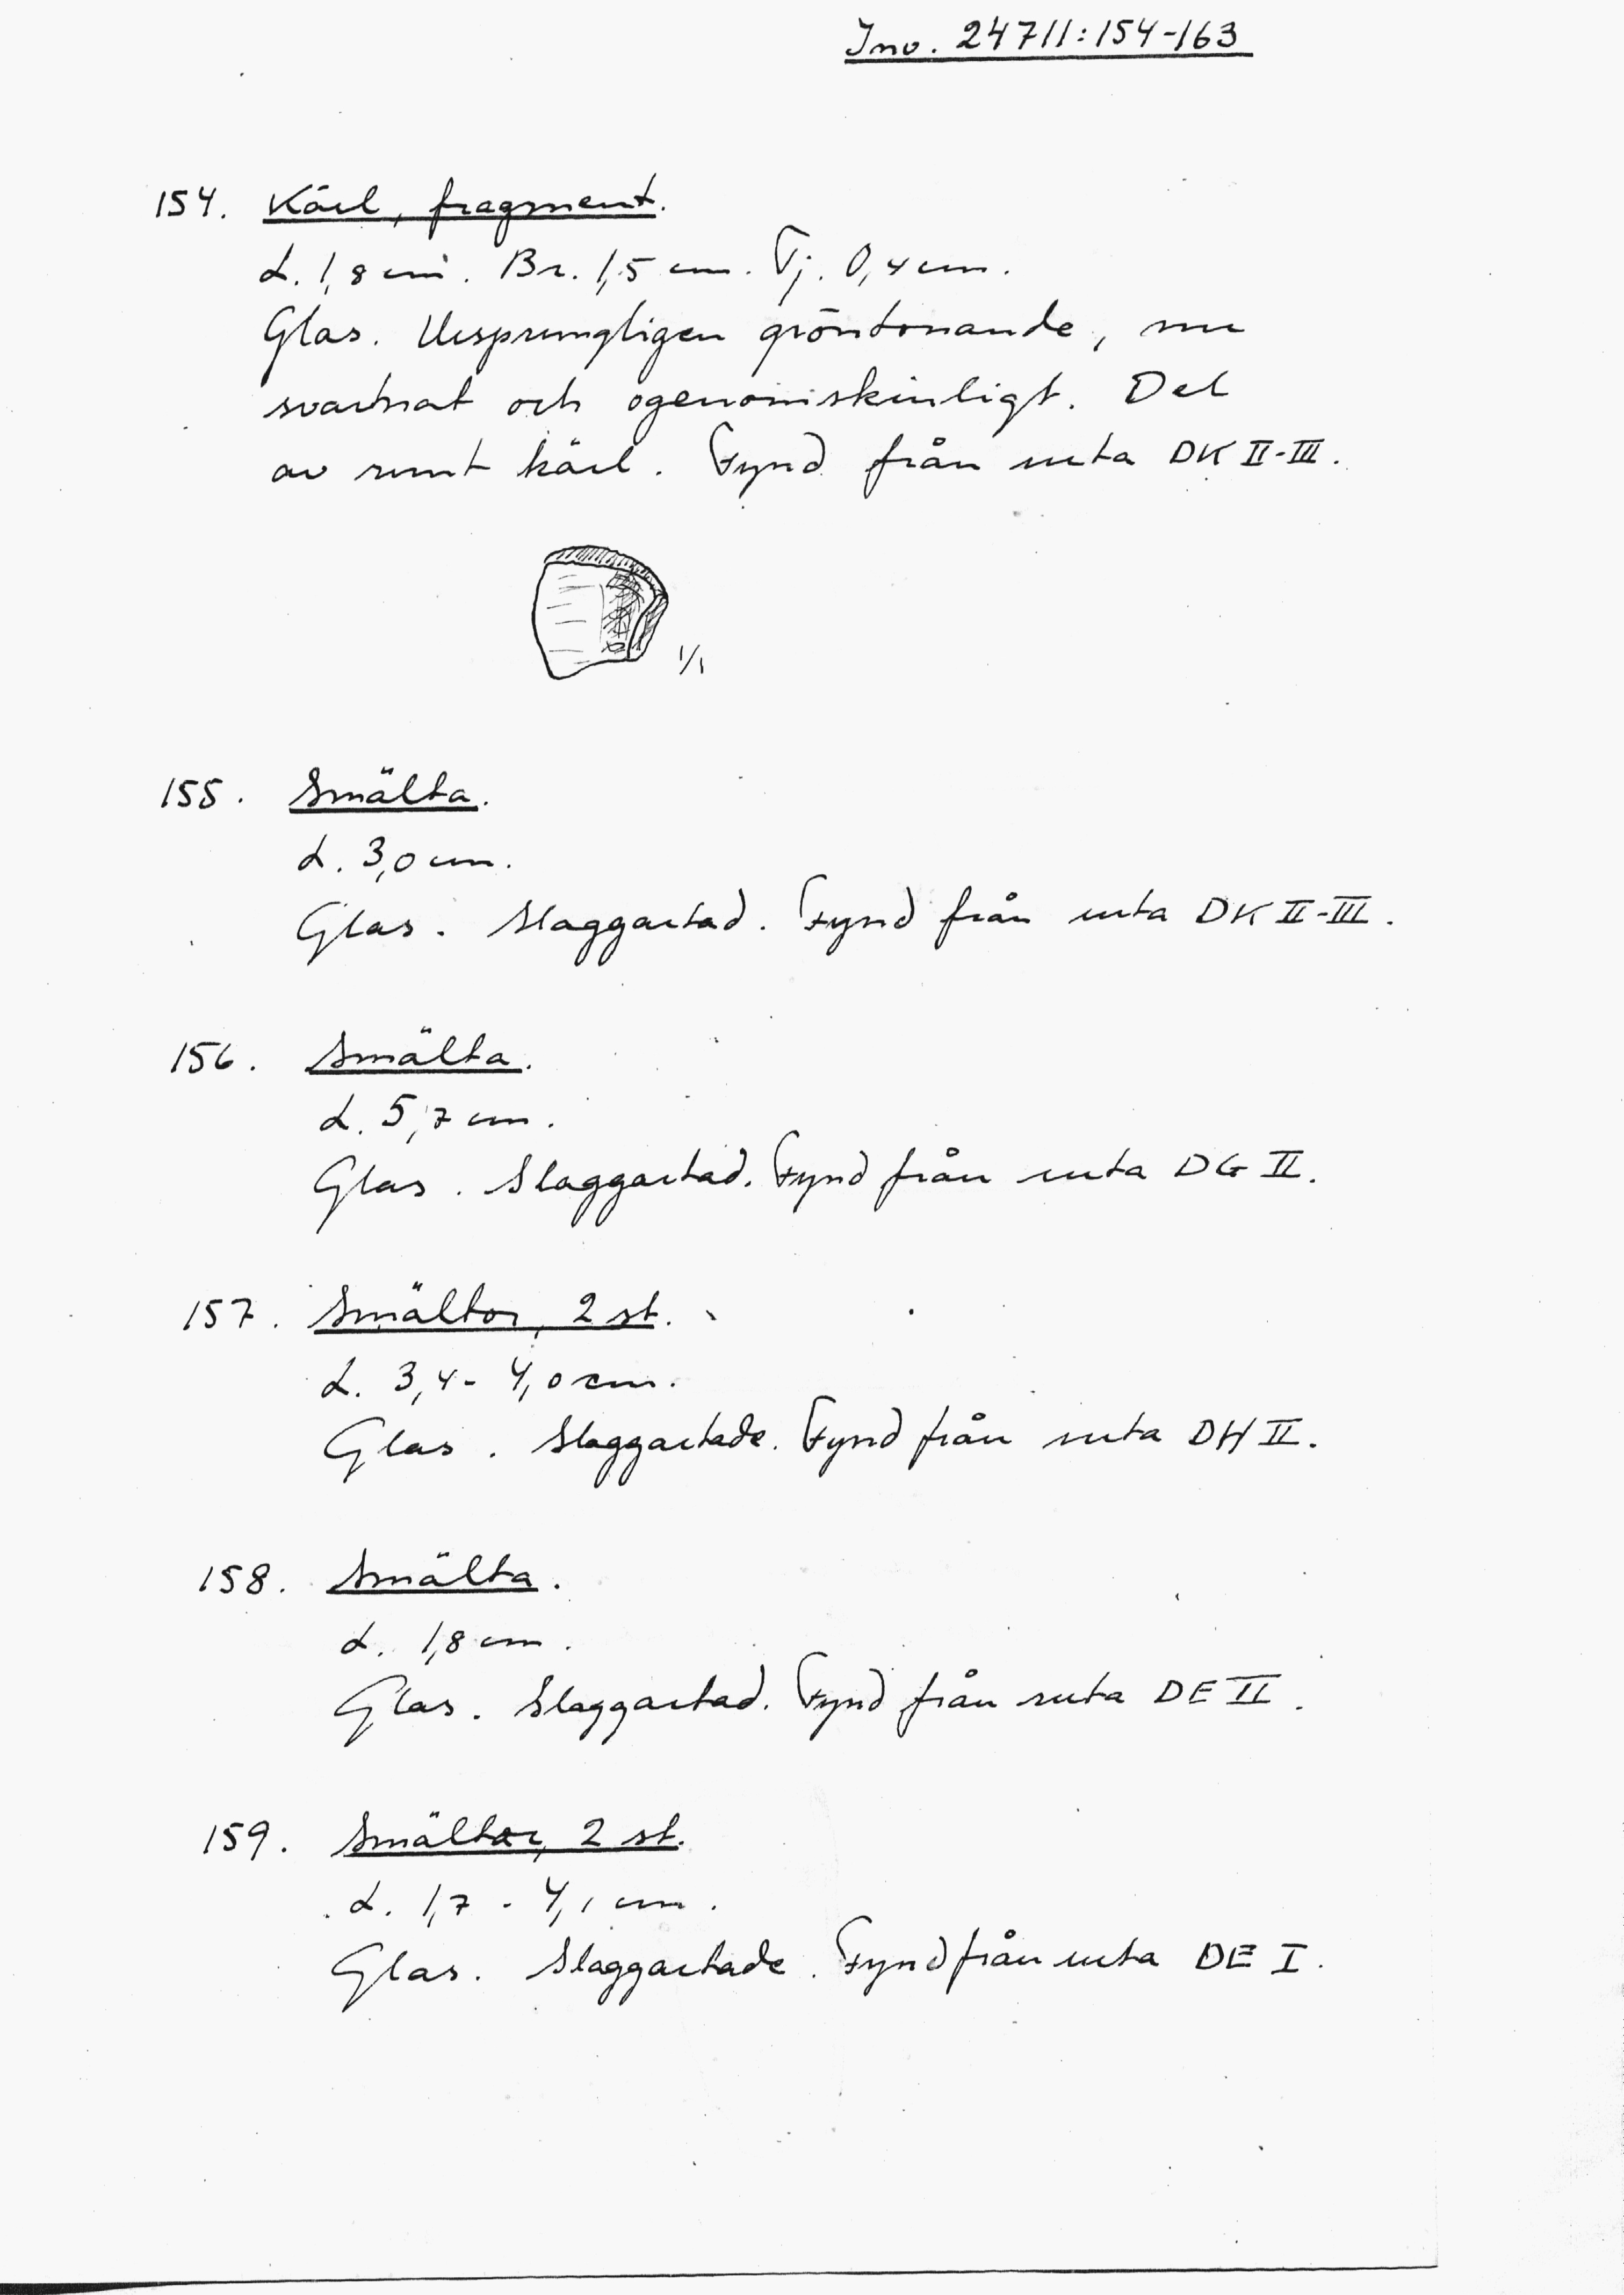 Inv. 24711:154-163
154. Kärl, fragment.
L. 1,8 cm. Br. 1,5 cm. Tj. 0,4 cm.
Glas. Ursprungligen gröntonande, nu
svartnat och ogenomskinligt. Del
av runt kärl. Fynd från ruta DK II-III.
1/1
155. Smälta.
L. 3,0 cm.
Glas. Slaggartad. Fynd från ruta DK II-III.
156. Smälta.
L. 5,7 cm.
Glas. Slaggartad. Fynd från ruta DG II.
157. Smältor, 2 st.
L. 3,4 - 4,0 cm.
Glas. Slaggartade. Fynd från ruta DH II.
158. Smälta.
L. 1,8 cm.
Glas. Slaggartad. Fynd från ruta DE II.
159. Smältor, 2 st.
L. 1,7 - 4,1 cm.
Glas. Slaggartade. Fynd från ruta DE I.